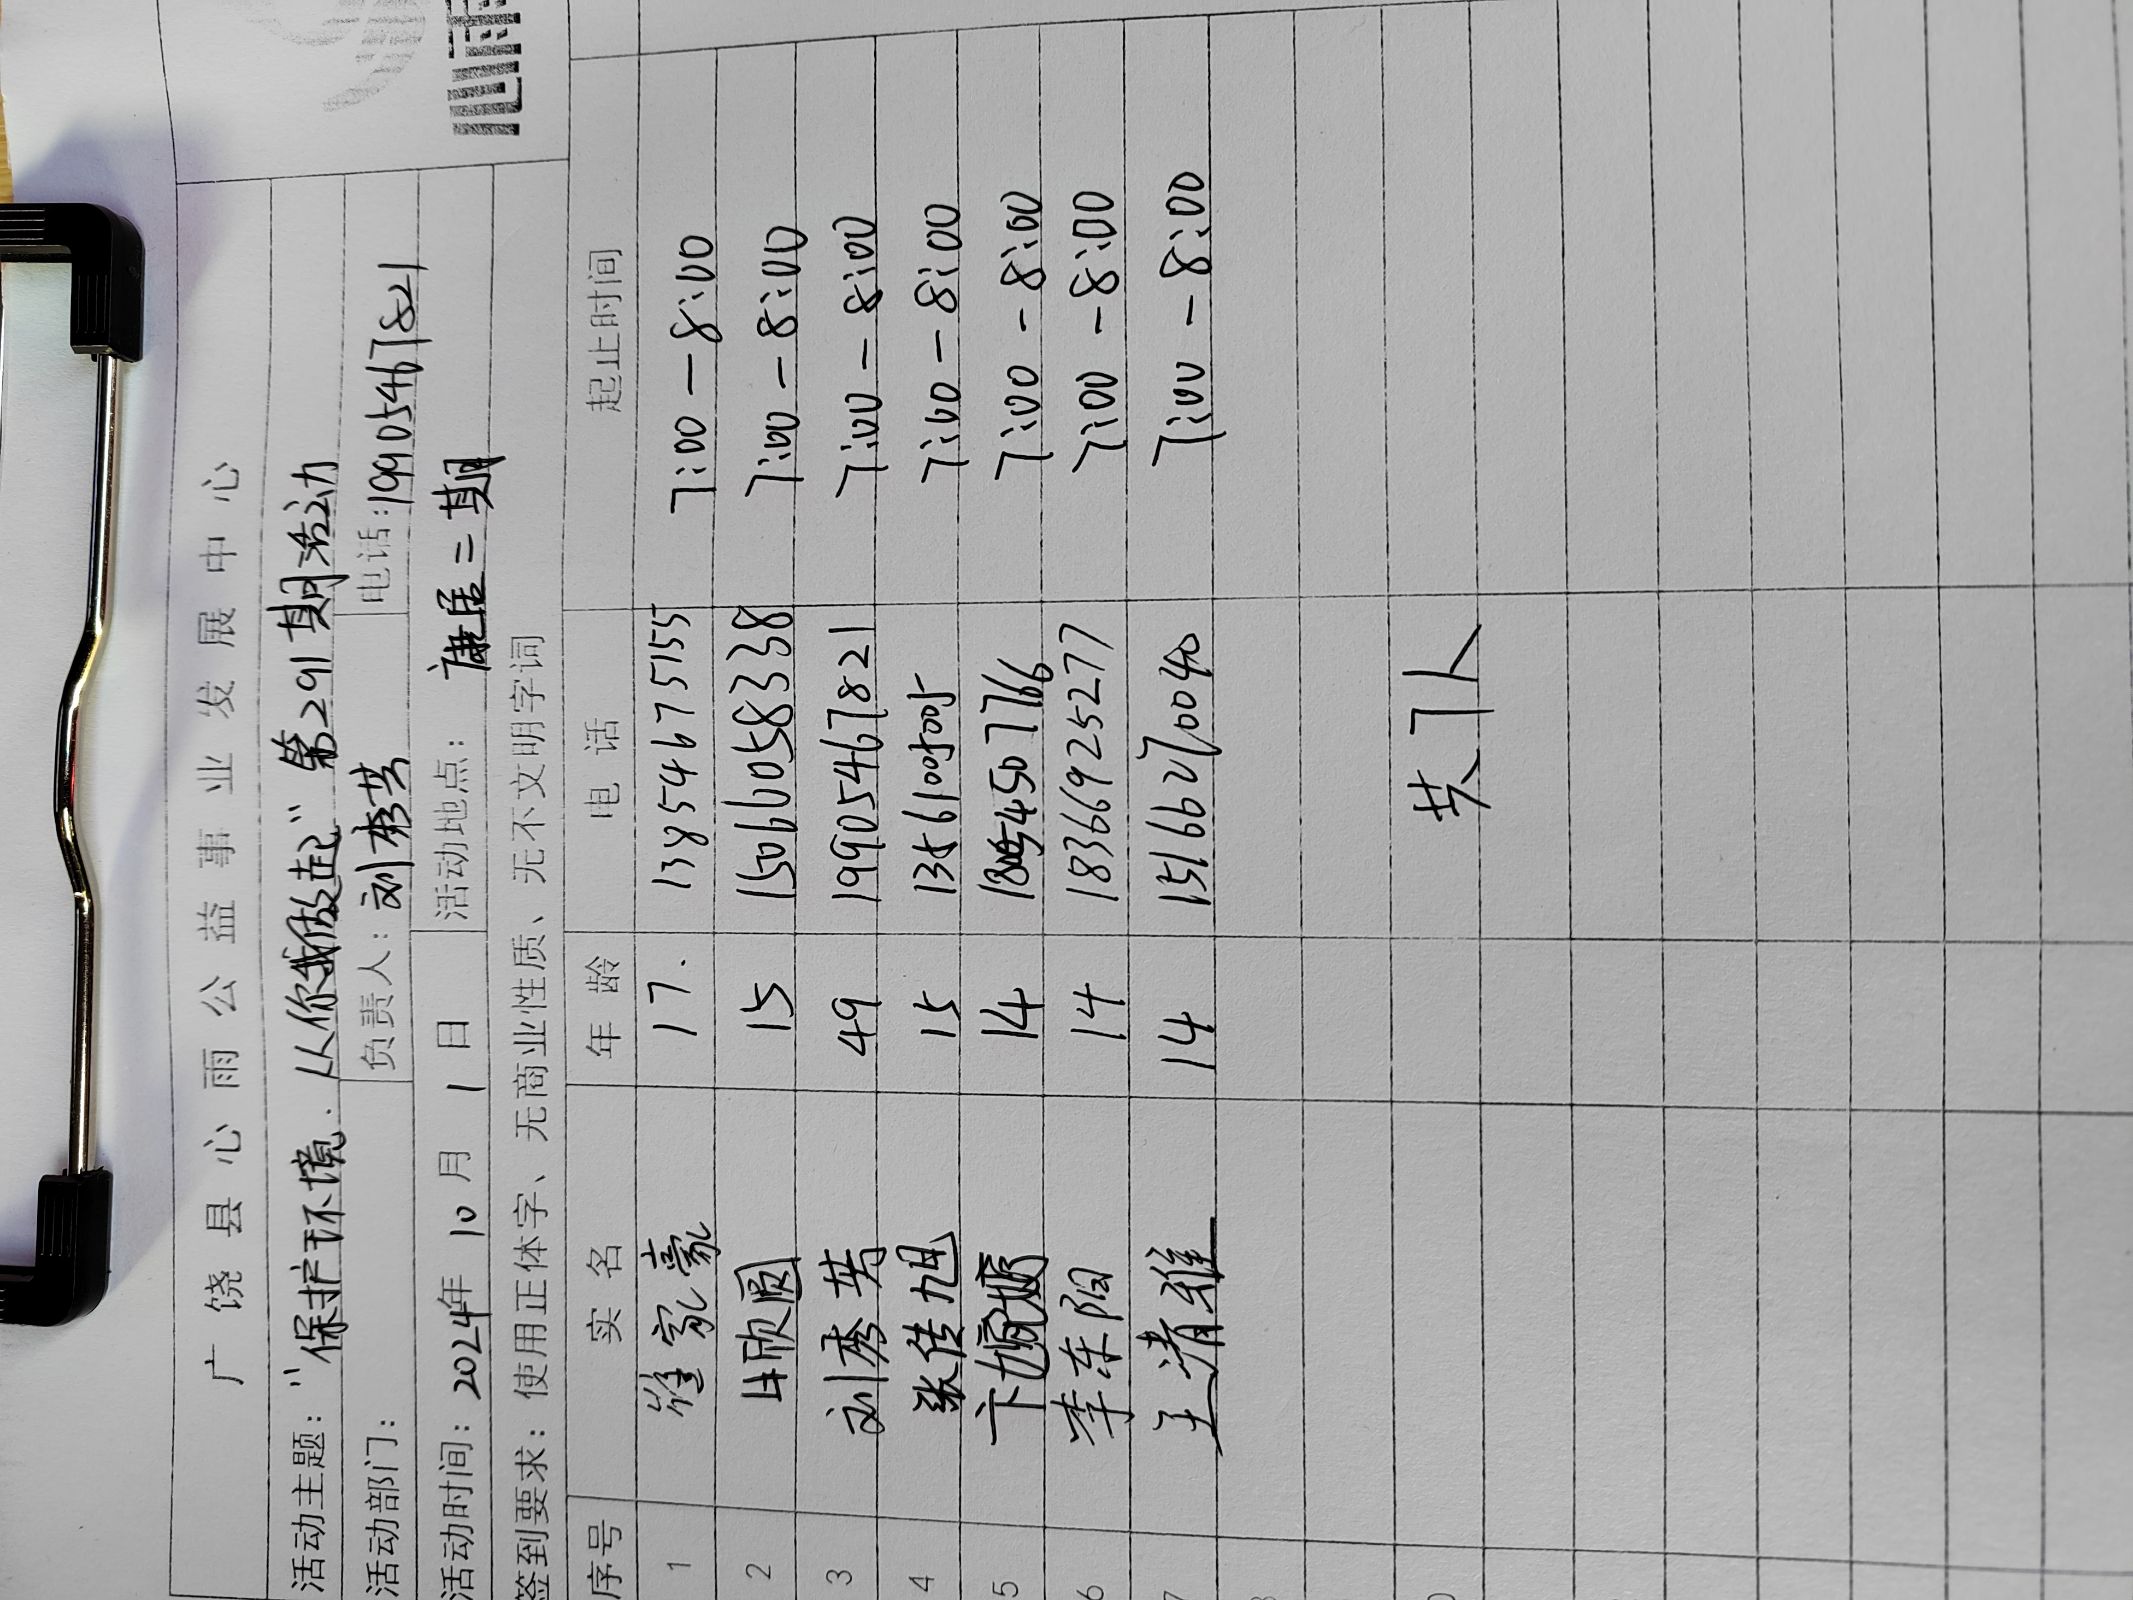 心雨
广饶县心雨公益事业发展中心
活动主题："保护环境.从你我做起"第291期活动
活动部门： 负责人：刘秀英 电话：19905467821
活动时间：2024年10月1日 活动地点：康居二期
签到要求：使用正体字、无商业性质、无不文明字词
序号 实名 年龄 电话 起止时间
1 崔家豪 17. 13854675155 7:00-8:00
2 欣圆 15 15066058338 7:00-8:00
3 刘秀英 49 19905467821 7:00-8:00
4 张传旭 15 13561005005 7:00-8:00
5 卞 14 1854507766 7:00-8:00
6 李东阳 14 18366925277 7:00-8:00
7 王渚雅 14 7:00-8:00
共7人